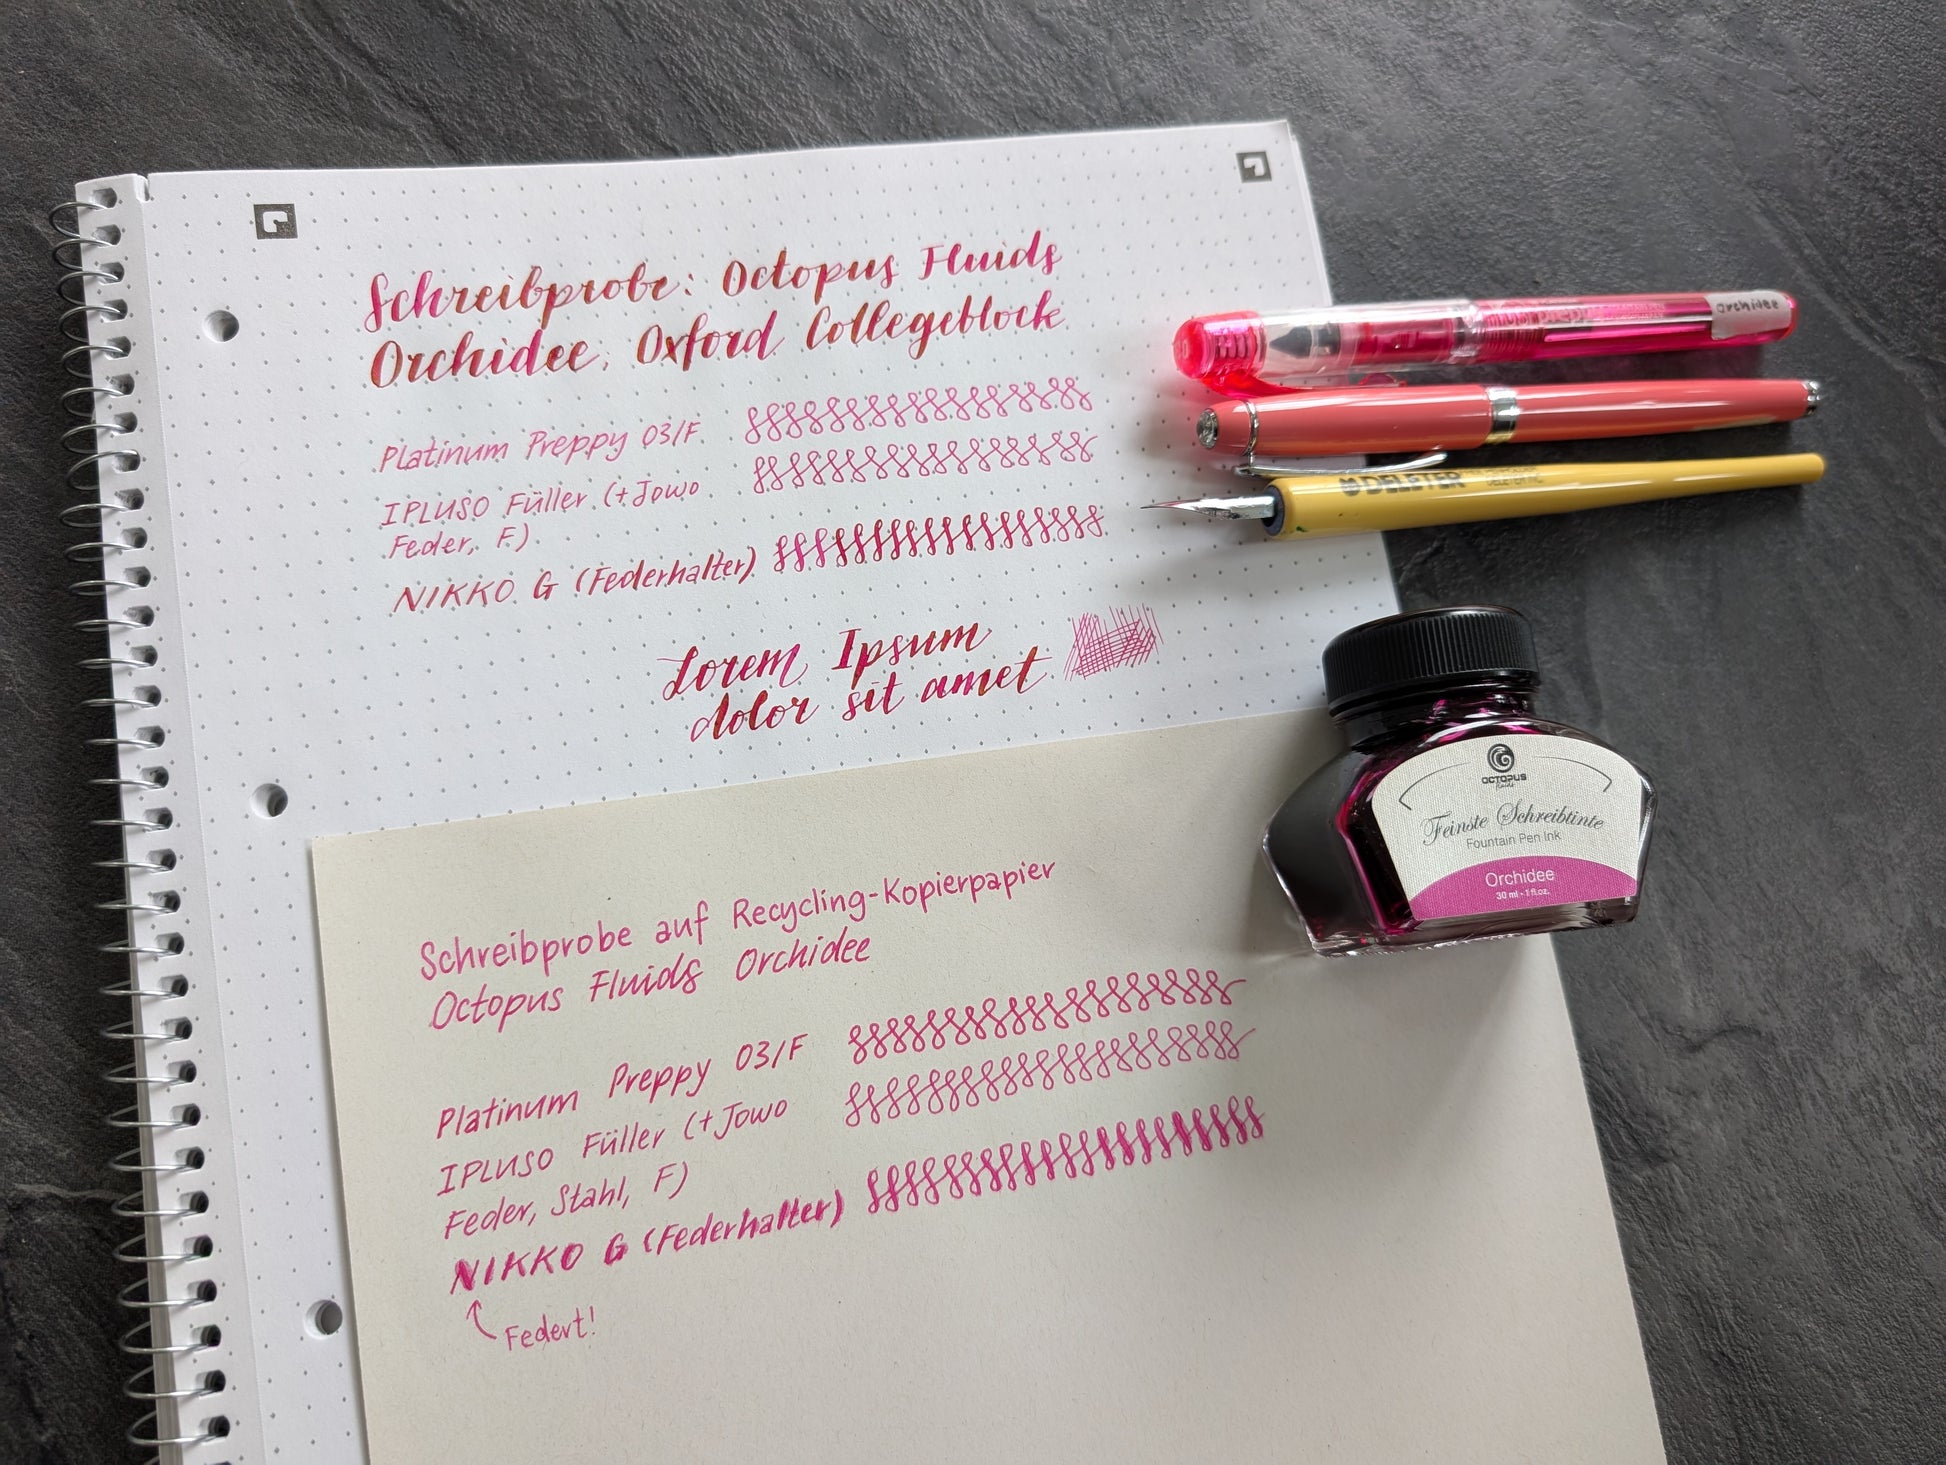 Schreibprobe: Octopus Fluids
Orchidee, Oxford Collegeblock
Platinum Preppy 03/F
IPLUSO Füller (+Jowo
Feder, F)
NIKKO G (Federhalter)
Lorem Ipsum
dolor sit amet
Orchidee
DELETER
OCTOPUS
Fluids
Feinste Schreibtinte
Fountain Pen Ink
Orchidee
30 ml - 1 fl.oz.
Schreibprobe auf Recycling-Kopierpapier
Octopus Fluids Orchidee
Platinum Preppy 03/F
IPLUSO Füller (+Jowo
Feder, Stahl, F)
NIKKO G (Federhalter)
Federt!